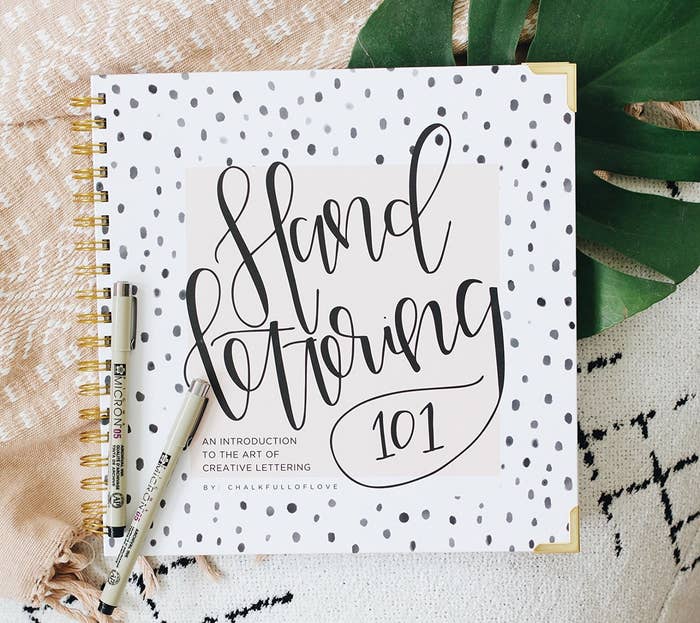 Hand
lettering
101
AN INTRODUCTION
TO THE ART OF
CREATIVE LETTERING
BY: CHALKFULLOFLOVE
MICRON 05
MICRON